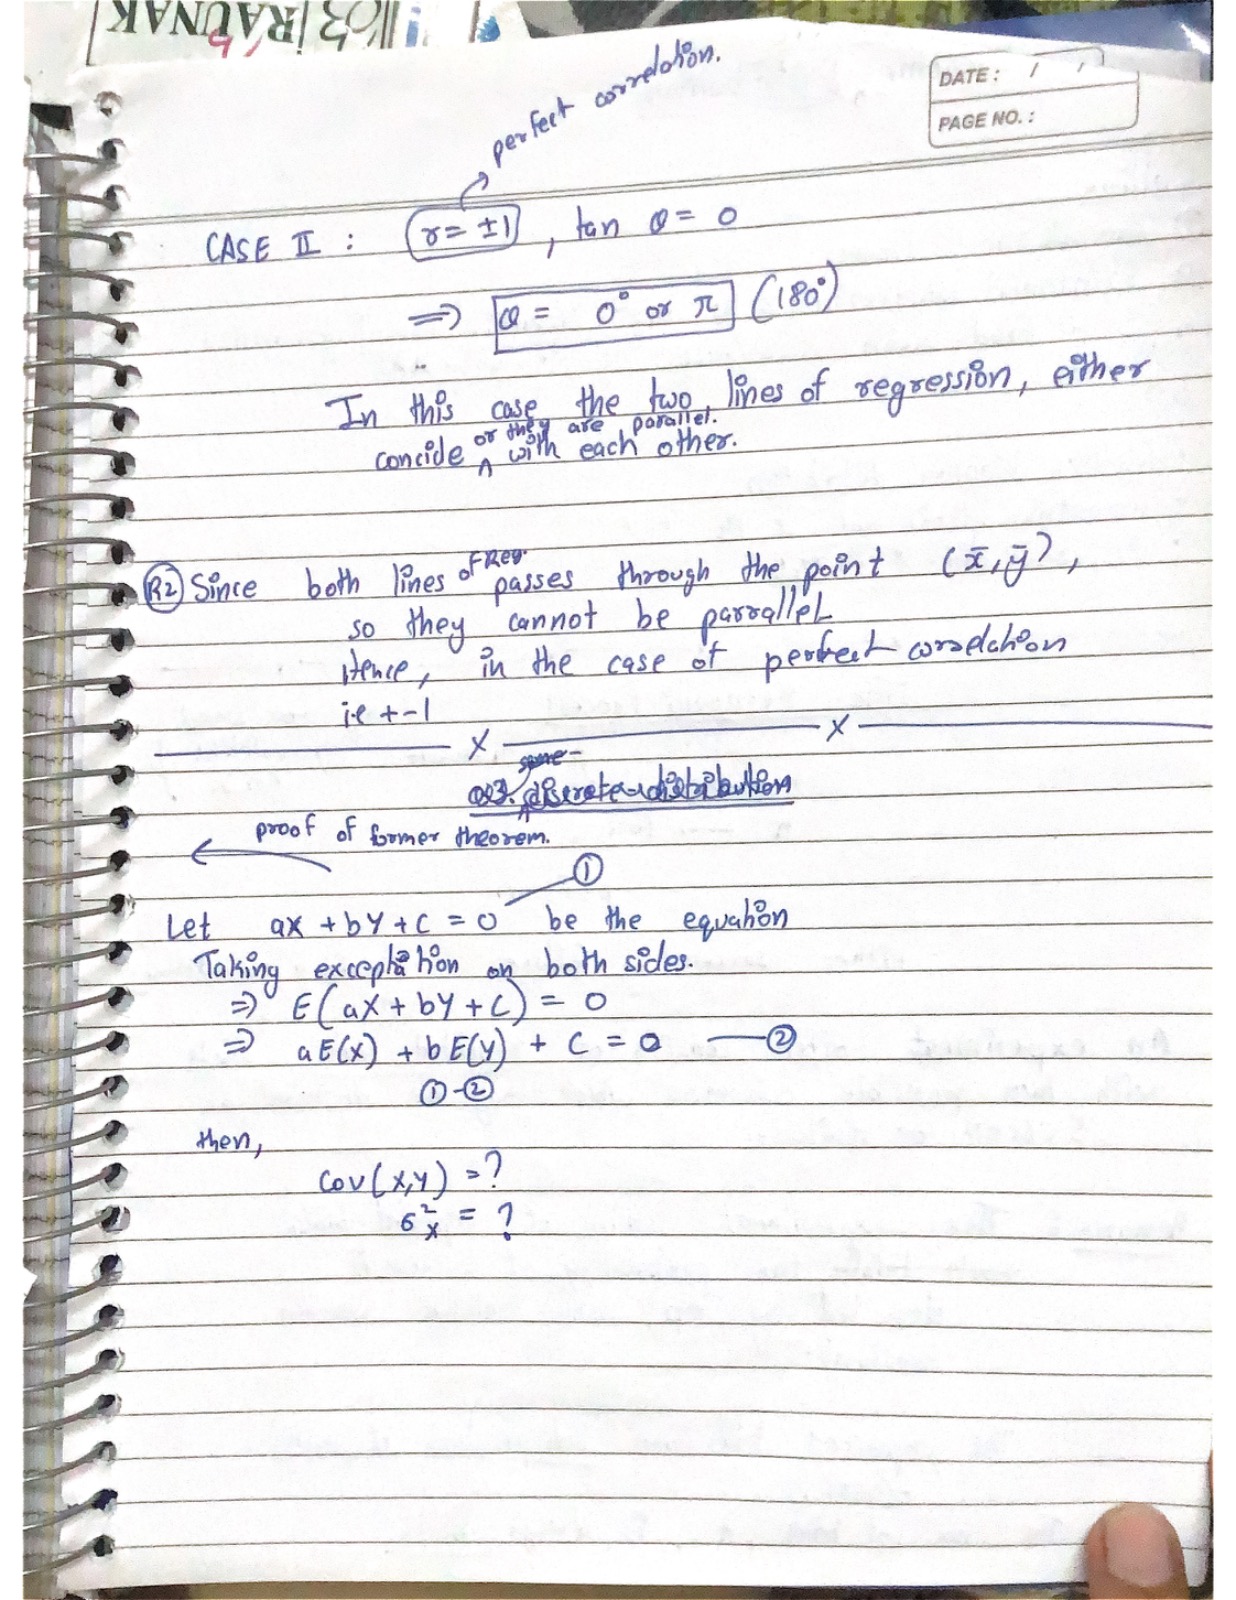 RAUNAK
DATE: / /
PAGE NO. :
perfect correlation.
CASE II : r = ±1 , tan θ = 0
⇒ θ = 0° or π (180°)
In this case the two lines of regression, either
or they are parallel.
concide ^ with each other.
R2 Since both lines of Reg. passes through the point (x̄, ȳ),
so they cannot be parrallel
Hence, in the case of perfect correlation
i.e + -1
X X
some
discrete distribution
proof of former theorem.
①
Let ax + by + c = 0 be the equation
Taking exceptation on both sides.
⇒ E(ax + by + c) = 0
⇒ aE(x) + bE(y) + c = 0 — ②
① - ②
then,
cov(x,y) = ?
σ²x = ?